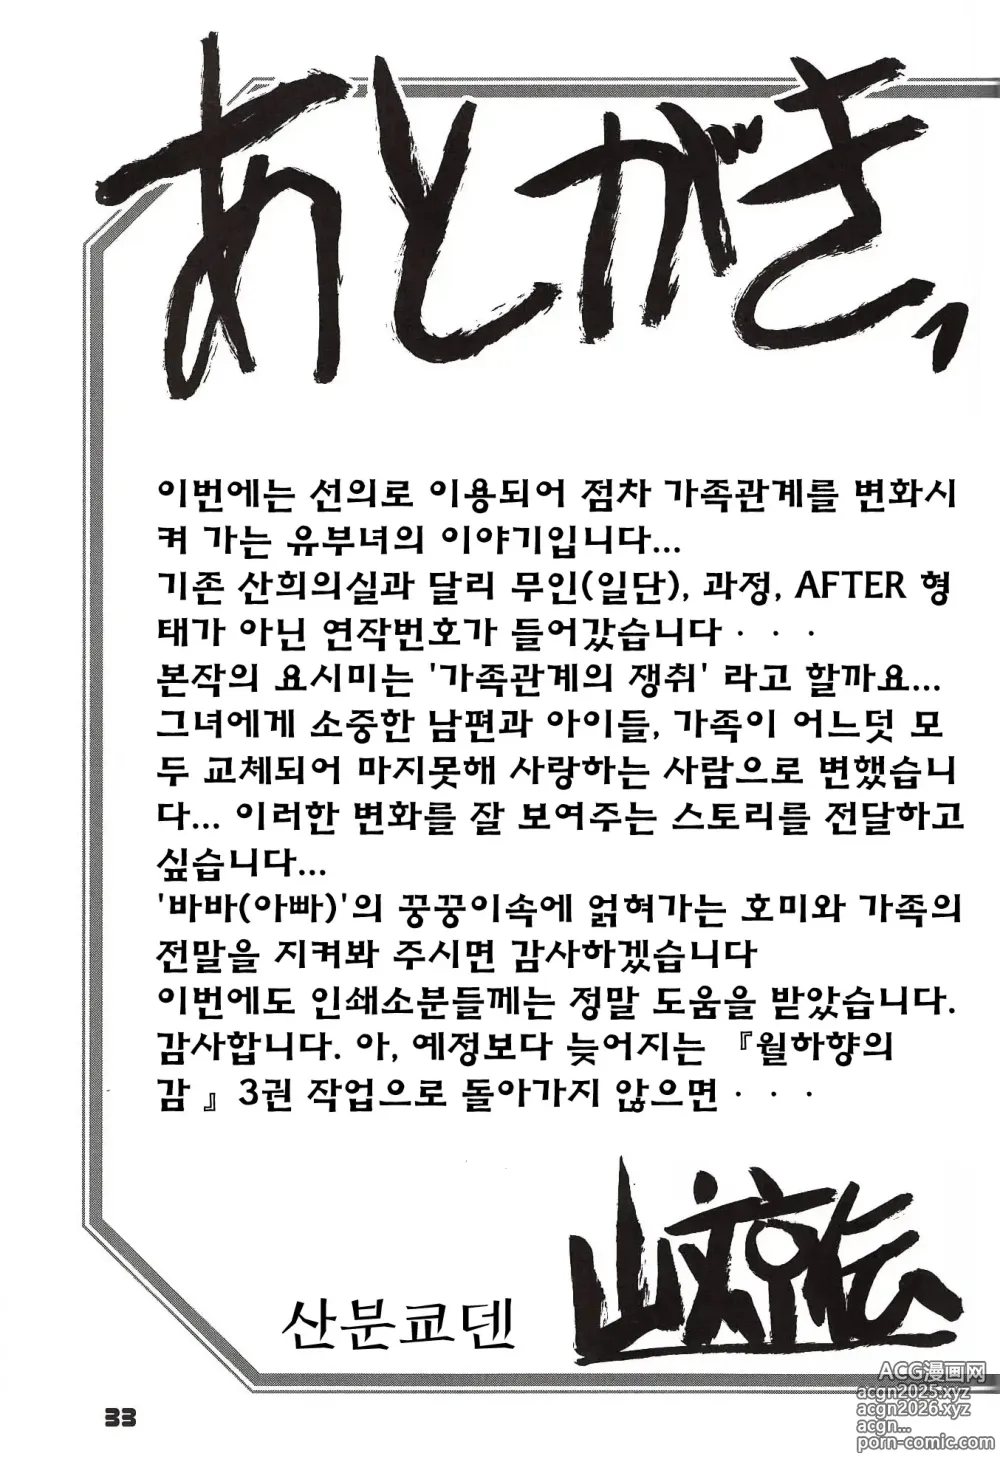 あとがき、
이번에는 선의로 이용되어 점차 가족관계를 변화시
켜 가는 유부녀의 이야기입니다...
기존 산희의실과 달리 무인(일단), 과정, AFTER 형
태가 아닌 연작번호가 들어갔습니다 · · ·
본작의 요시미는 '가족관계의 쟁취' 라고 할까요...
그녀에게 소중한 남편과 아이들, 가족이 어느덧 모
두 교체되어 마지못해 사랑하는 사람으로 변했습니
다... 이러한 변화를 잘 보여주는 스토리를 전달하고
싶습니다...
'바바(아빠)'의 꿍꿍이속에 얽혀가는 호미와 가족의
전말을 지켜봐 주시면 감사하겠습니다
이번에도 인쇄소분들께는 정말 도움을 받았습니다.
감사합니다. 아, 예정보다 늦어지는 『월하향의
감 』3권 작업으로 돌아가지 않으면 · · ·
산분교덴
ACG漫画网
acgn2025.xyz
acgn2026.xyz
acgn...
porn-comic.com
33